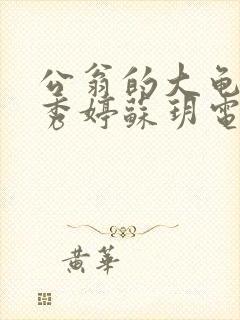 公翁的大龟
秀婷蘇玥電
黄華